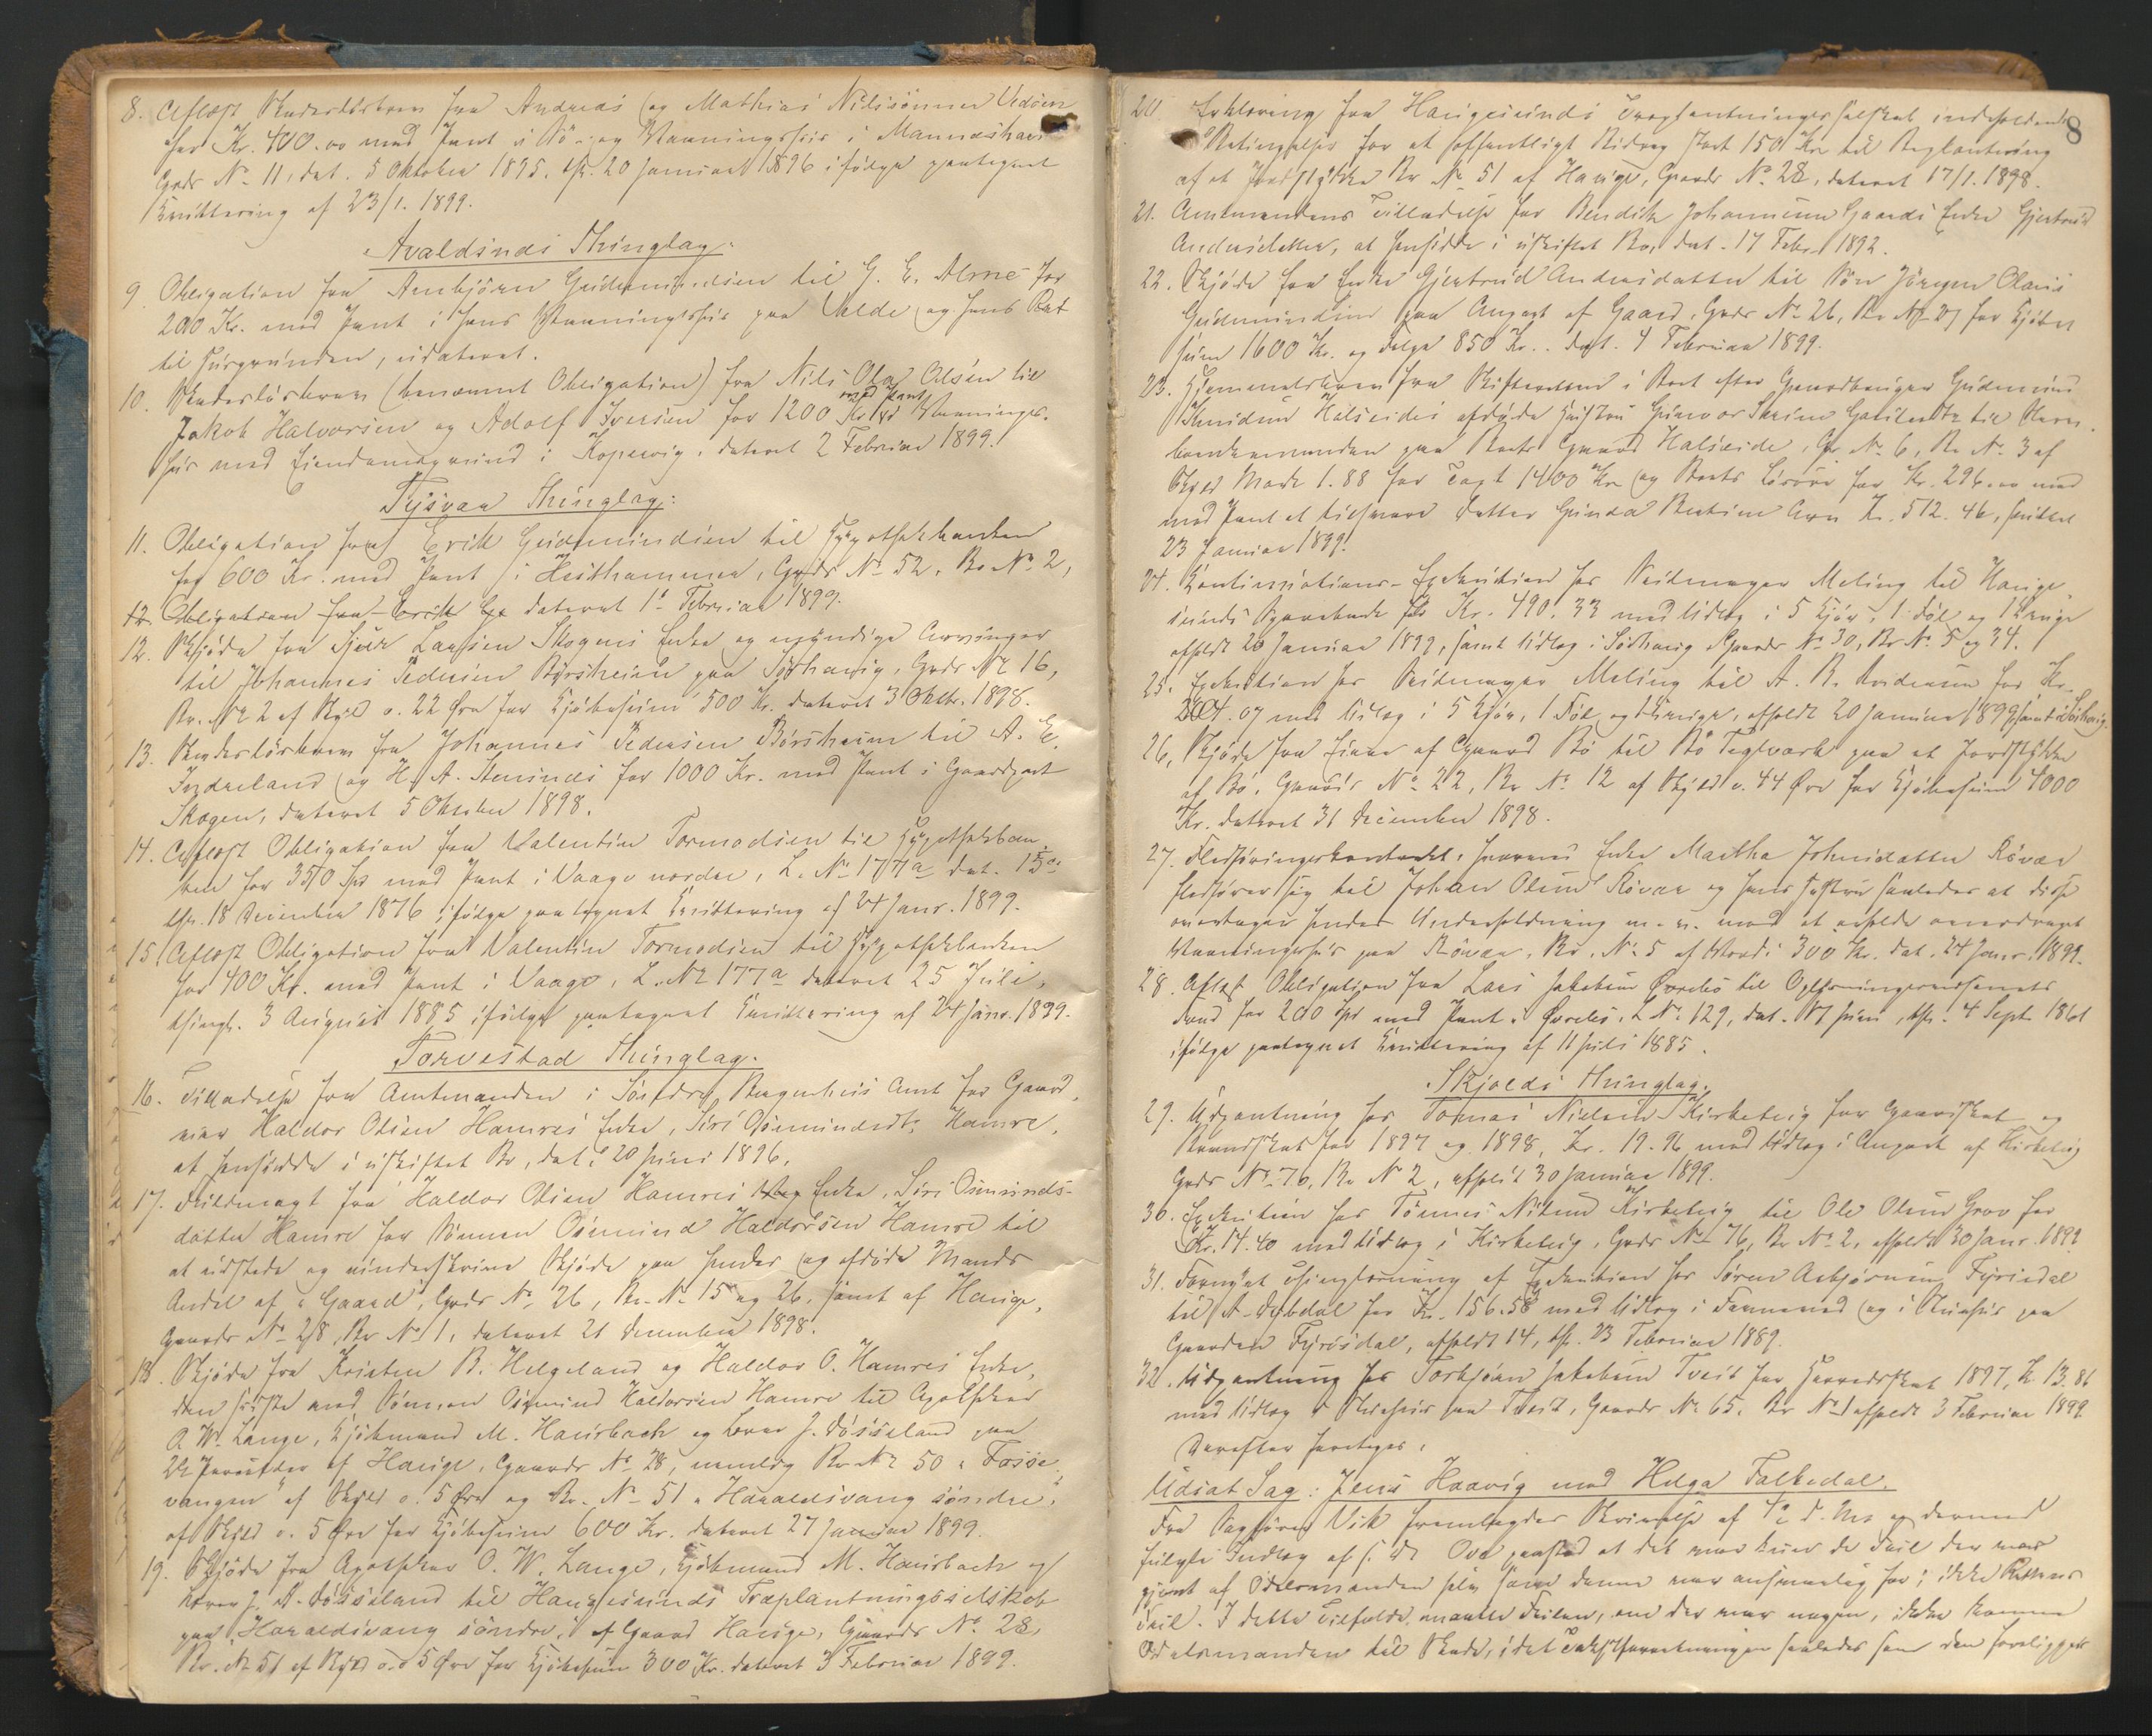 8. Aflæst Skadesløsbrev fra Andreas og Mathias Nilssønner Vedøen
for Kr. 400.00 med Pant i Sø- og Vaaningshus i
Grds No 11, dat. 5 Oktober 1895, th. 20 Januar 1896 ifølge paategnet
Kvittering af 23/1. 1899.
Avaldsnds Thinglag:
9. Obligation fra Arnbjörn Gudmundsen til G. E. Alme for
200 Kr. med Pant i hans Vaaningshus paa Valde og hans Ret
til Husgrunden, udateret.
10. Skadesløsbrev (benævnt Obligation) fra Nils Ola Olsen til
Jakob Halvorsen og Adolf Iversen for 1200 Kr. med Pant Vaanings-
hus med Eiendomsgrund i Kopervig, dateret 2 Februar 1899.
Tysvær Thinglag:
11. Obligation fra Erik Gudmundsen til Hypothekbanken
for 600 Kr. med Pant i Hesthammer, Grds No 52, Br No 2,
12. Obligation fra Erik Gu dateret 1ste Februar 1899.
12. Skjøde fra Sjur Larssen Skogens Enke og myndige Arvinger
til Johannes Pedersen Børsheim paa Sørhaug, Grds No 16,
Br. No 2 af Skyld o. 22 Øre for Kjøbesum 500 Kr. dateret 3 Oktbr. 1898.
13. Skadesløsbrev fra Johannes Pedersen Børsheim til A. E.
Inderland og H. A. Stensnes for 1000 Kr. med Pant i Gaardpart
Skogen, dateret 5 Oktober 1898.
14. Aflæst Obligation fra Valentin Tormodsen til Hypothekban-
ken for 350 Spd med Pant i Vaage nordre, L. No 177a dat. 15de
th. 18 December 1876 ifølge paategnet Kvittering af 24 Janr. 1899.
15. Aflæst Obligation fra Valentin Tormodsen til Hypothekbanken
for 400 Kr. med Pant i Vaage, L. No 177a dateret 25 Juli,
thingl. 3 August 1885 ifølge paategnet Kvittering af 24 Janr. 1899.
Torvestad Thinglag:
16. Tilladelse fra Amtmanden i Søndre Bergenhus Amt for Gaard-
mand Haldor Olsen Hamres Enke, Siri Osmundsdtr Hamre,
at hensidde i uskiftet Bo, dat. 20 Juni 1896.
17. Fuldmagt fra Haldor Olsen Hamres Enke, Siri Osmunds-
datter Hamre for Sønnen Osmund Haldorsen Hamre til
at udstede og underskrive Skjøde paa hendes og afdøde Mands
Andel af "Gaard", Grds No 26, Br. No 15 og 26, samt af Hauge,
Gaards No 28, Br No 1, dateret 21 December 1898.
18. Skjøde fra Kristen B. Helgeland og Haldor O. Hamres Enke,
den sidste ved Sønnen Osmund Haldorsen Hamre til Apotheker
O. W. Lange, Kjøbmand M. Hausbach og Lærer J. Røsseland paa
2de Parceller af Hauge, Gaards No 28, nemlig Br No 50 "Fosse-
vangen" af Skyld o. 5 Øre og Br. No 51 "Haraldsvang søndre",
af Skyld o. 5 Øre for Kjøbesum 600 Kr. dateret 27 Januar 1899.
19. Skjøde fra Apotheker O. W. Lange, Kjøbmand M. Hausbach og
Lærer J. A. Røsseland til Haugesunds Træplantningsselskab
paa "Haraldsvang söndre", af Gaard Hauge, Gaards No 28,
Br. No 51 af Skyld o. 5 Øre for Kjøbesum 300 Kr. dateret 3 Februar 1899.
8
20. Erklæring fra Haugesunds Træplantningsselskab indeholdende
Betingelser for et offentligt Bidrag stort 150 Kr til Beplantning
af et Jordstykke Br No 51 af Hauge, Gaards No 28, dateret 17/1. 1898.
21. Amtmandens Tilladelse for Bendik Johannesen Gaards Enke Gjertrud
Andersdatter, at hensidde i uskiftet Bo, dat. 17 Febr. 1892.
22. Skjøde fra Enke Gjertrud Andersdatter til Søn Jörgen Olaus
Gudmundsen paa Anpart af Gaard, Grds No 26, Br No 27 for Kjøbe-
sum 1600 Kr. og Følge 850 Kr. dat. 4 Februar 1899.
23. Hjemmelsbrev fra Skifteretten i Boet efter Gaardbruger Gudmund
Knudsen Halseides afdøde Hustru Gunvor
paa Boets Gaard Halseide, Gr No 6, Br No 3 af
Skyld Mark 1.88 for Taxt 1400 Kr og Boets Løsøre for Kr. 296.00 mod
med Pant at tilsvare Datter Gunda Bertine Arv Kr. 512.46, sluttet
23 Januar 1899.
24. Kontinuations-Exekution hos Vedmager Meling til Hauge-
sunds Sparebank for Kr. 490.33 med Udlæg i 5 Kjør, 1 Føl og 1 Kvige
afholdt 20 Januar 1899, samt Udlæg i Sørhaug Gaards No 30, Br No 5 og 34.
25. Exekution hos Vedmager Meling til A. B. Andersen for Kr.
204.07 med Udlæg i 5 Kjør, 1 Føl og 1 Kvige, afholdt 20 Januar 1899, samt i Sørhaug.
26. Skjøde fra Eiere af Gaard Bø til Bø Teglværk paa et Jordstykke
af Bø, Gaards No 22, Br No 12 af Skyld o. 44 Øre for Kjøbesum 4000
Kr. dateret 31 December 1898.
27. Fledføringskontrakt, hvorved Enke Martha Johnsdatter Röver
fledfører sig til Johan Olsen Röver og hans Hustru saaledes at disse
overtager hendes Underholdning m. v. mod at erholde overdraget
Vaaningshus paa Röver, Br. No 5 af Værdi 300 Kr. dat. 24 Janr. 1899.
28. Aflæst Obligation fra Lars Jakobsen Øvrebø til Oplysningsvæsenets
Fond for 200 Spd med Pant i Øvrebø, L No 129, dat. 17 Juni, th. 4 Sept 1861
ifølge paategnet Kvittering af 11 Juli 1885.
Skjolds Thinglag:
29. Udpantning hos Tomas Nielsen Kirketeig for Herredsskat og
Amtsskat for 1897 og 1898, Kr. 19.96 med Udlæg i Anpart af Kirketeig
Grds No 76, Br No 2, afholdt 30 Januar 1899.
30. Exekution hos Tönnes Nilsen Kirketeig til Ole Olsen Grov for
Kr. 14.40 med Udlæg i Kirketeig, Grds No 76, Br No 2, afholdt 30 Janr. 1899
31. Fornyet Thinglæsning af Exekution hos Søren Asbjørnsen Fyrisdal
til A. for Kr. 156.58 med Udlæg i og i Stuehus paa
Gaarden Fyrisdal, afholdt 14, th. 23 Februar 1889.
32. Udpantning hos Torbjørn Jakobsen Tveit for Herredsskat 1897, Kr 13.86
med Udlæg i Stuehus paa Tveit, Gaards No 65, Br No 1 afholdt 3 Februar 1899
Derefter foretoges:
Udsat Sag: Jens Haavig mod Helga Falkedal.
Fra Sagfører Vik fremlagdes Skrivelse af d. Ms og dermed
fulgte Indlæg af s. D. Ove paastod at det var kun de Feil der var
gjort af Odelsmanden selv som denne var ansvarlig for; ikke Rettens
Feil. I dette Tilfælde maatte Feilen, om der var nogen, ikke komme
Odelsmanden til Skade, idet Takstforretningen saaledes som den foreligger